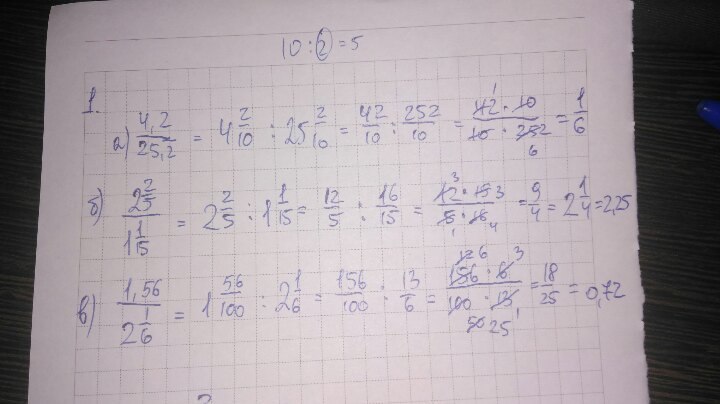 10 : 2 = 5
1.
а) 4,2/25,2 = 4 2/10 : 25 2/10 = 42/10 : 252/10 = 42 · 10 / 10 · 252 = 1/6
б) 2 2/5 / 1 1/15 = 2 2/5 : 1 1/15 = 12/5 : 16/15 = 12 · 15 / 5 · 16 = 9/4 = 2 1/4 = 2,25
в) 1,56 / 2 1/6 = 1 56/100 : 2 1/6 = 156/100 : 13/6 = 156 · 6 / 100 · 13 = 18/25 = 0,72